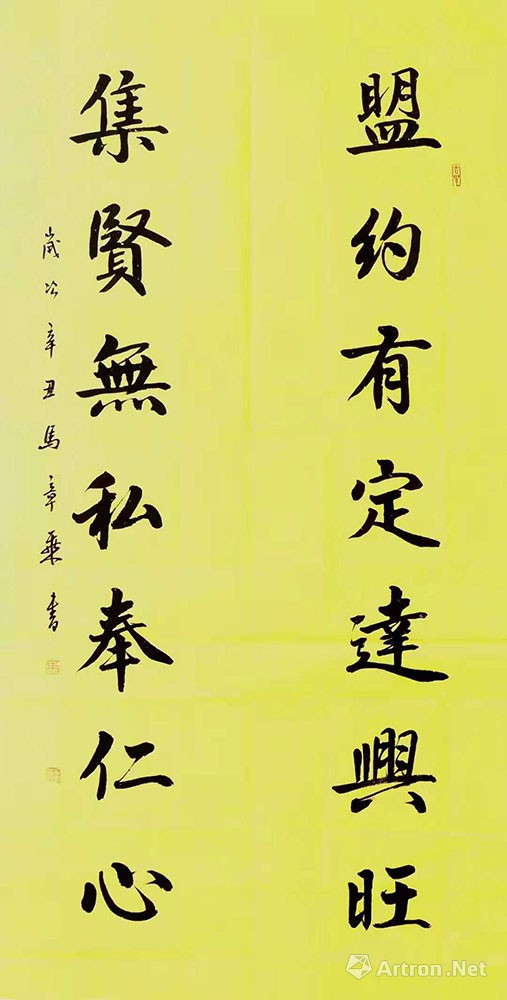 盟約有定達興旺
集賢無私奉仁心
嵗次辛丑馬章乘書
Artron.Net